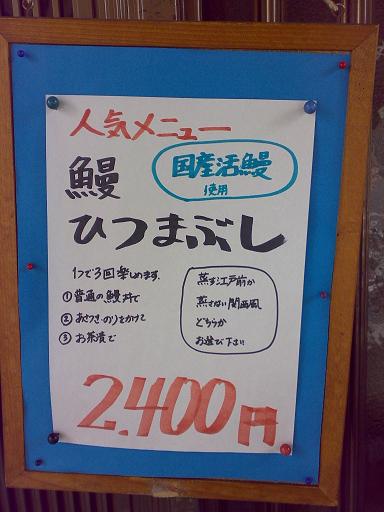 人気メニュー
国産活鰻
使用
鰻
ひつまぶし
1つで3回楽しめます。
① 普通の鰻丼で
② あさつき・のりをかけて
③ お茶漬で
蒸す江戸前か
蒸さない関西風
どちらか
お選び下さい
2.400円